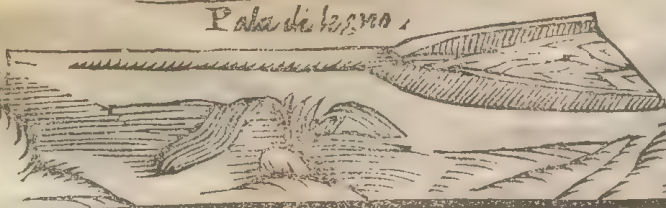 Pala di legno.